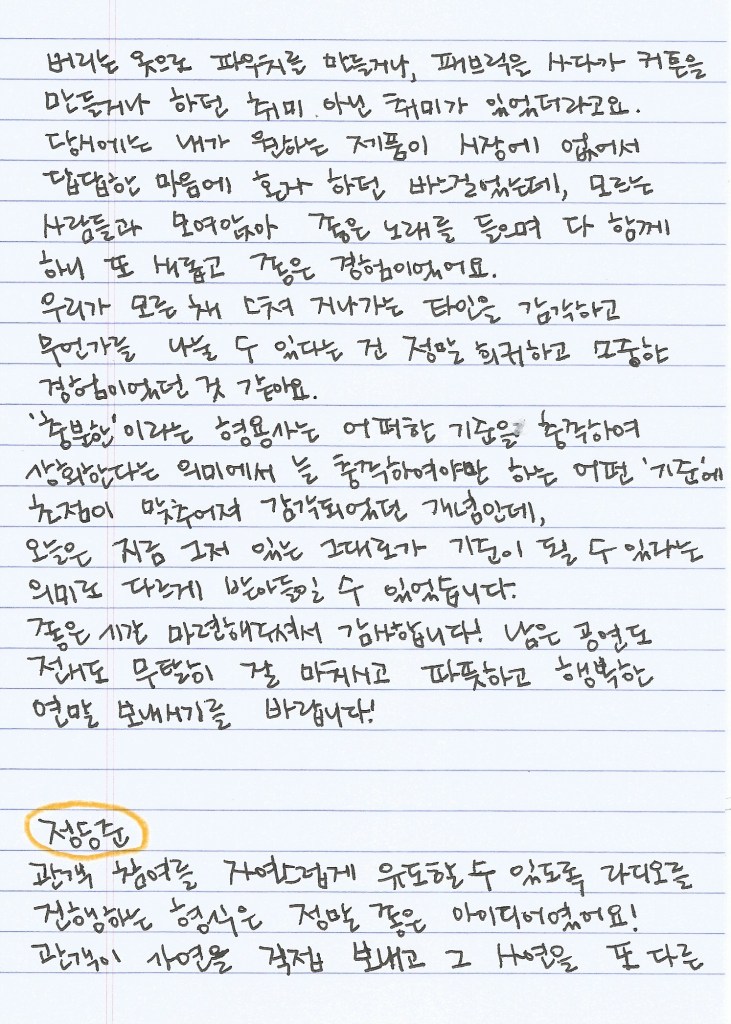 버리는 옷으로 파우치를 만들거나, 패브릭을 사다가 커튼을
만들거나 하던 취미 아닌 취미가 있었더라고요.
당시에는 내가 원하는 제품이 시장에 없어서
답답한 마음에 혼자 하던 바느걸었는데, 모르는
사람들과 모여앉아 좋은 노래를 들으며 다 함께
하니 또 새롭고 좋은 경험이었어요.
우리가 모른 채 스쳐 지나가는 타인을 감각하고
무언가를 나눌 수 있다는 건 정말 희귀하고 소중한
경험이었던 것 같아요.
'충분한'이라는 형용사는 어떠한 기준을 충족하여
상회한다는 의미에서 늘 충족하여야만 하는 어떤 '기준'에
초점이 맞추어져 감각되었던 개념인데,
오늘은 지금 그저 있는 그대로가 기준이 될 수 있다는
의미로 다르게 받아들일 수 있었습니다.
좋은 시간 마련해주셔서 감사합니다! 남은 공연도
전시도 무탈히 잘 마치시고 따뜻하고 행복한
연말 보내시기를 바랍니다!
정동준
관객 참여를 자연스럽게 유도할 수 있도록 라디오를
진행하는 형식은 정말 좋은 아이디어였어요!
관객이 사연을 직접 보내고 그 사연을 또 다른